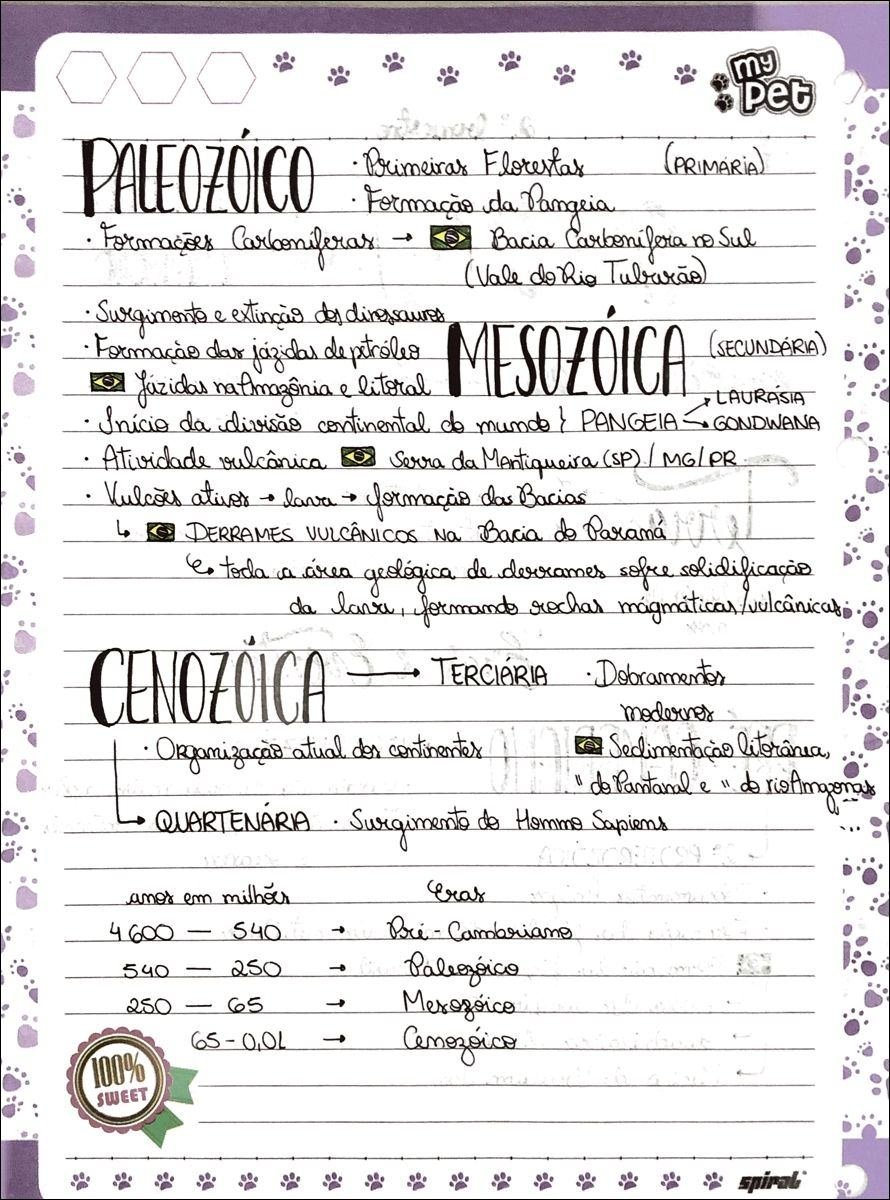 my pet
PALEOZÓICO · Primeiras Florestas (PRIMÁRIA)
· Formação da Pangeia
· Formações Carboníferas → Bacia Carbonífera no Sul
(Vale do Rio Tubarão)
· Surgimento e extinção dos dinossauros
· Formação das jázidas de petróleo MESOZÓICA (SECUNDÁRIA)
Jázidas na Amazônia e litoral
→ LAURÁSIA
· Início da divisão continental do mundo } PANGEIA → GONDWANA
· Atividade vulcânica Serra da Mantiqueira (SP) / MG/PR
· Vulcões ativos → lava → formação das Bacias
↳ DERRAMES VULCÂNICOS NA Bacia do Paraná
↳ toda a área geológica de derrames sofre solidificação
da lava, formando rochas mágmáticas/vulcânicas
CENOZÓICA → TERCIÁRIA · Dobramentos
modernos
· Organização atual dos continentes Sedimentação litorânea,
" do Pantanal e " do rio Amazonas
→ QUARTENÁRIA · Surgimento do Hommo Sapiens
anos em milhões Eras
4600 — 540 → Pré-Cambriano
540 — 250 → Paleozóico
250 — 65 → Mesozóico
65-0,01 → Cenozóico
100%
SWEET
spiral